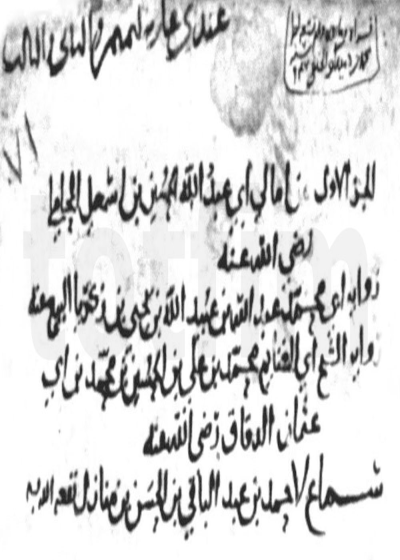 عندي عارية
٧١
الجزء الاول من امالي ابي عبد الله الحسين بن اسمعيل المحاملي
رضي الله عنه
رواية ابي محمد عبد الله بن عبيد الله بن يحيى بن زكريا البيع عنه
رواية الشيخ ابي الغنايم محمد بن علي بن الحسن بن محمد بن ابي
عثمان الدقاق رضي الله عنه
سماع لاحمد بن عبد الباقي بن الحسن بن منازل نفعه الله به